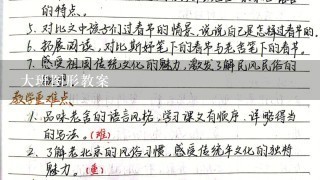 的特点。
5. 对比文中孩子们过春节的情景,说说自己是怎样过春节的。
6. 拓展阅读,对比斯好笔下的春节与老舍笔下的春节。
7. 感受祖国传统文化的魅力,激发了解民风民俗的
大班图形教案
教学重难点
1. 品味老舍的语言风格,学习课文有顺序、详略得当
的写法。(难)
2. 了解老北京的风俗习惯,感受传统年文化的独特
魅力。(重)